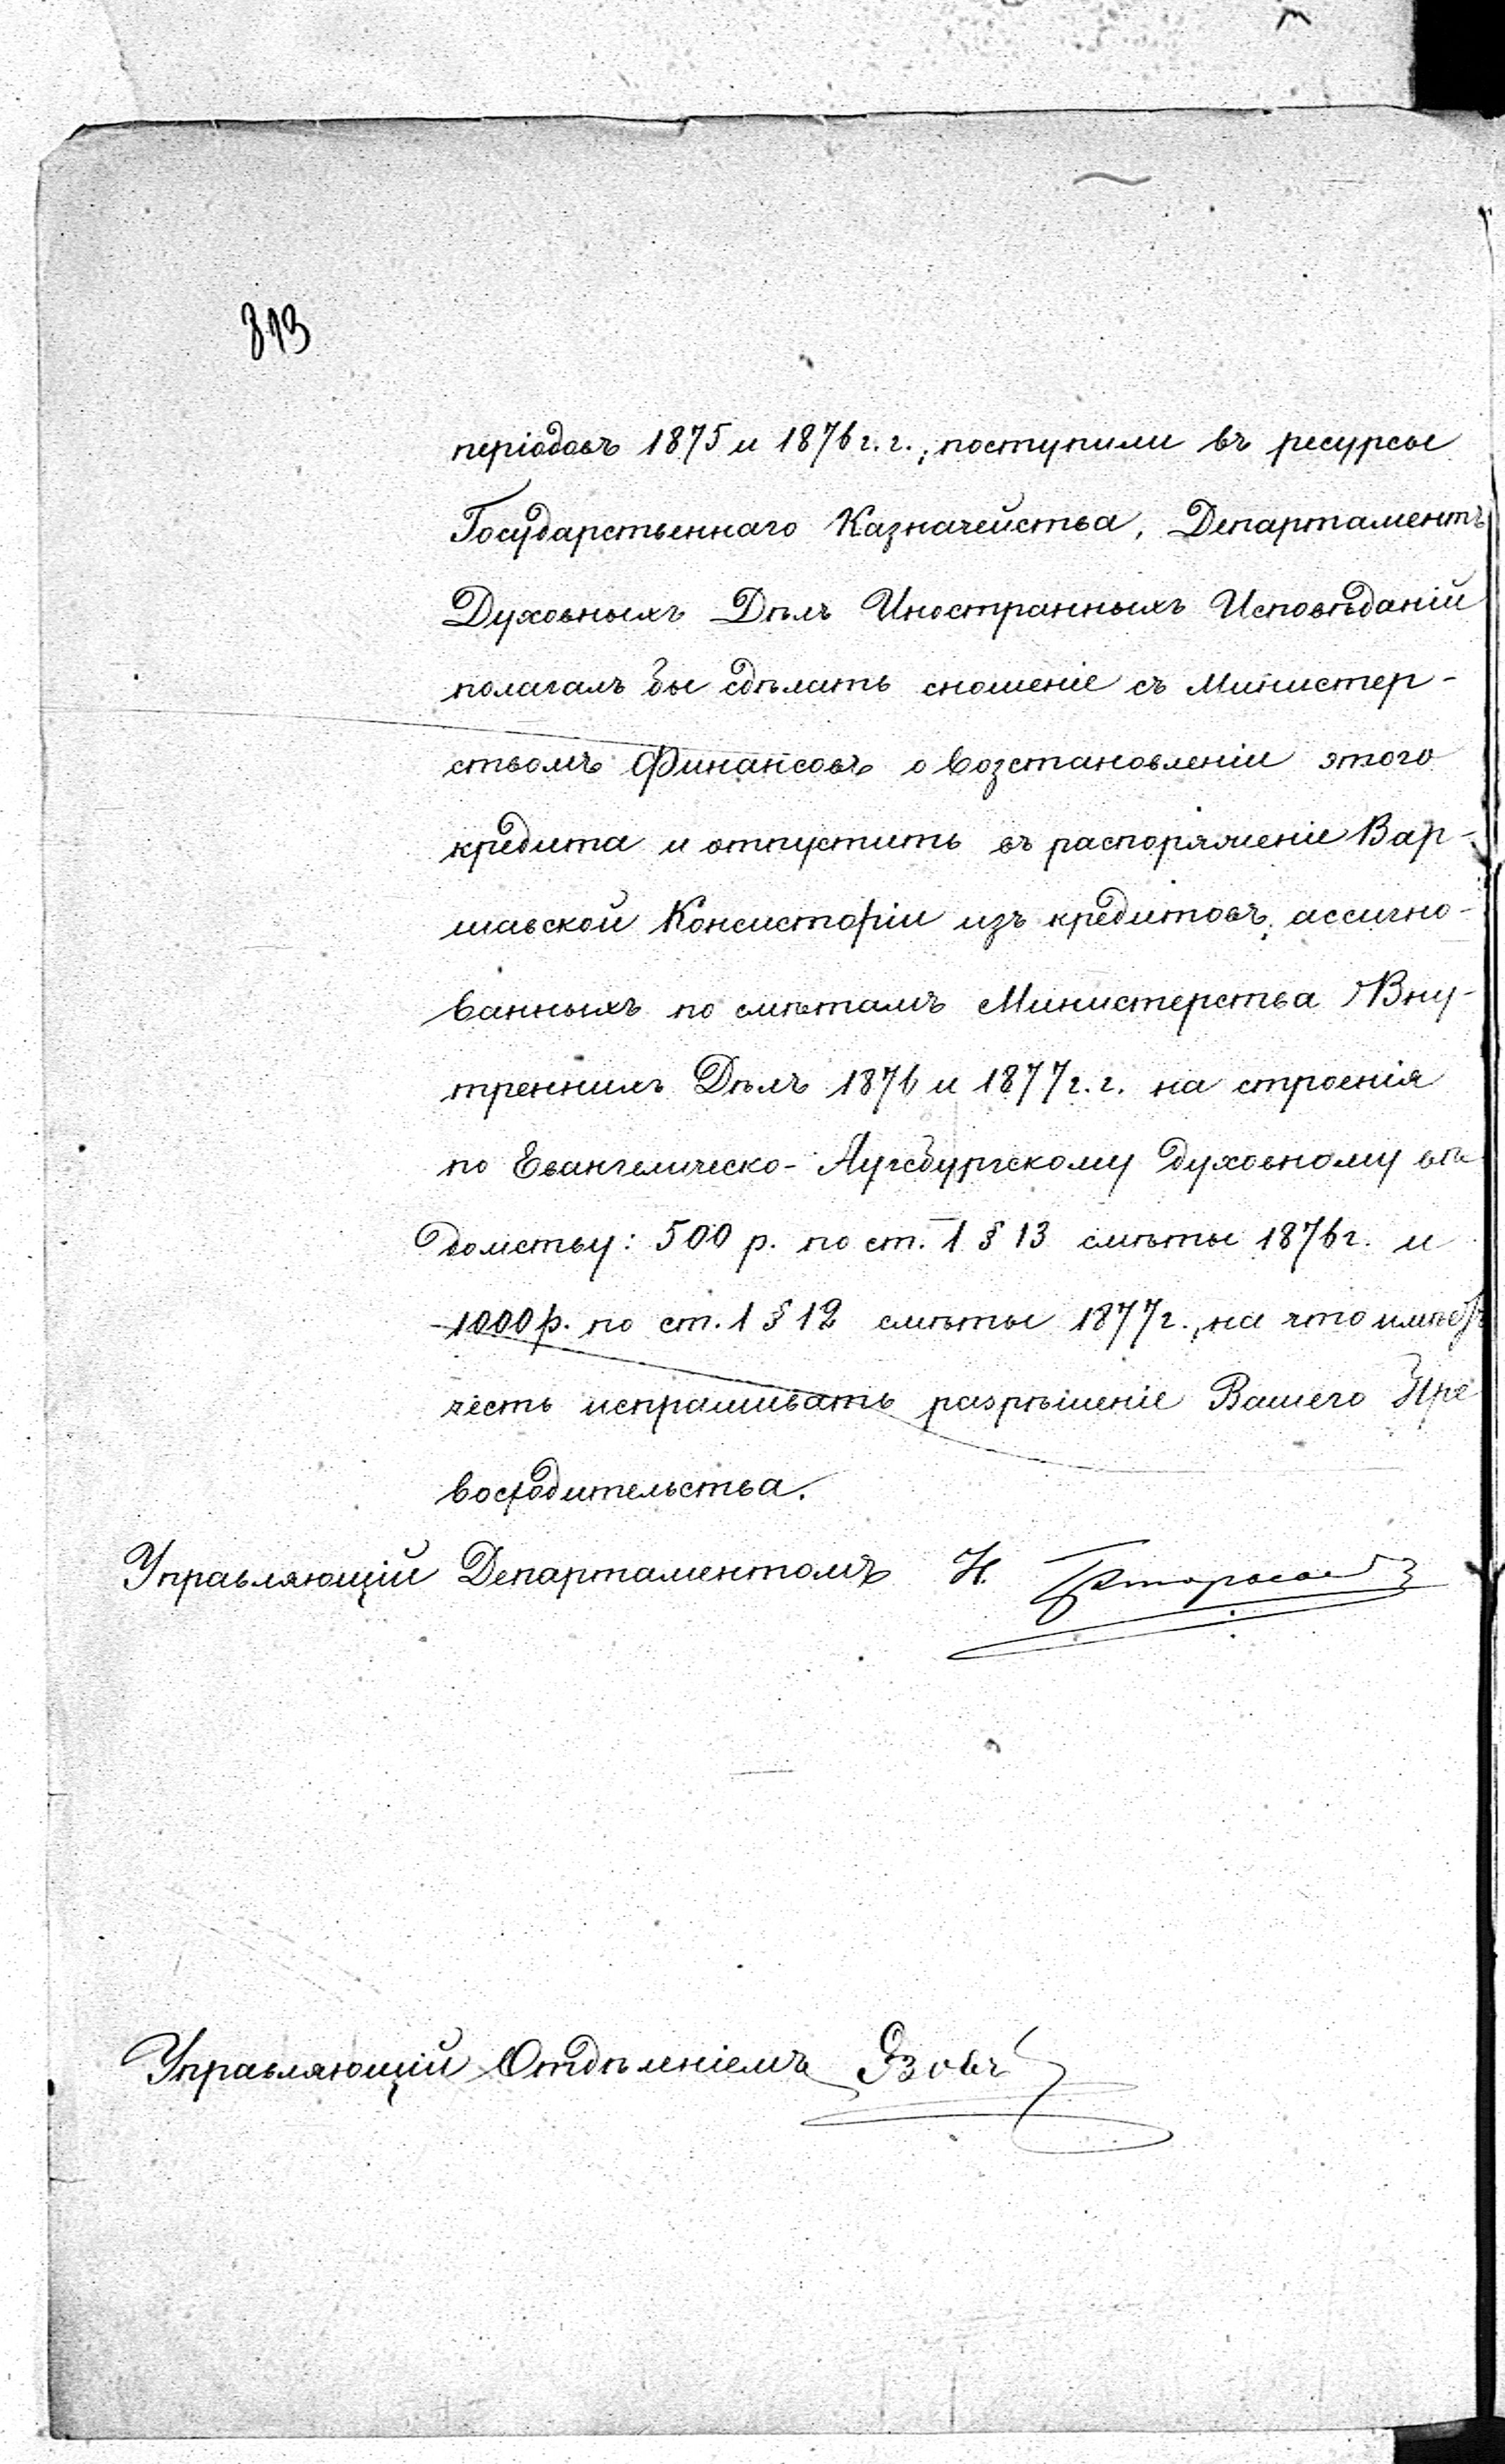 813
періодовъ 1875 и 1876 г.г., поступили въ ресурсы
Государственнаго Казначейства, Департаментъ
Духовныхъ Дѣлъ Иностранныхъ Исповѣданій
полагалъ бы сдѣлать сношеніе съ Министер-
ствомъ Финансовъ о возстановленіи этого
кредита и отпустить въ распоряженіе Вар-
шавской Консисторіи изъ кредитовъ, ассигно-
ванныхъ по смѣтамъ Министерства Вну-
треннихъ Дѣлъ 1876 и 1877 г.г. на строенія
по Евангелическо-Аугсбургскому духовному вѣ-
домству: 500 р. по ст. 1 § 13 смѣты 1876 г. и
1000 р. по ст. 1 § 12 смѣты 1877 г., на что имѣетъ
честь испрашивать разрѣшеніе Вашего Пре
восходительства.
Управляющій Департаментомъ Н.
Управляющій Отдѣленіемъ Эзовъ